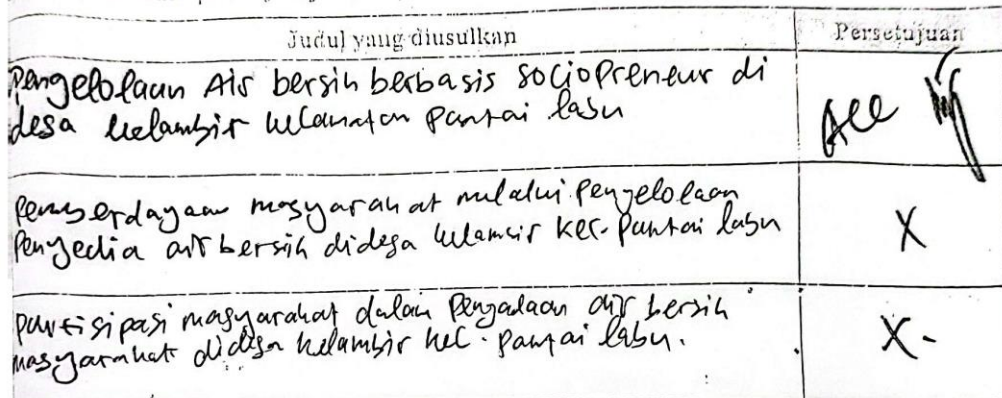 Judul yang diusulkan Persetujuan
Pengelolaan Air bersih berbasis sociopreneur di
desa kelambir kecamatan pantai labu
Acc
Pemberdayaan masyarakat melalui pengelolaan
Penyedia air bersih didesa kelambir kec. Pantai labu
X
partisipasi masyarakat dalam Pengadaan air bersih
masyarakat didesa kelambir kec. pantai labu.
X.